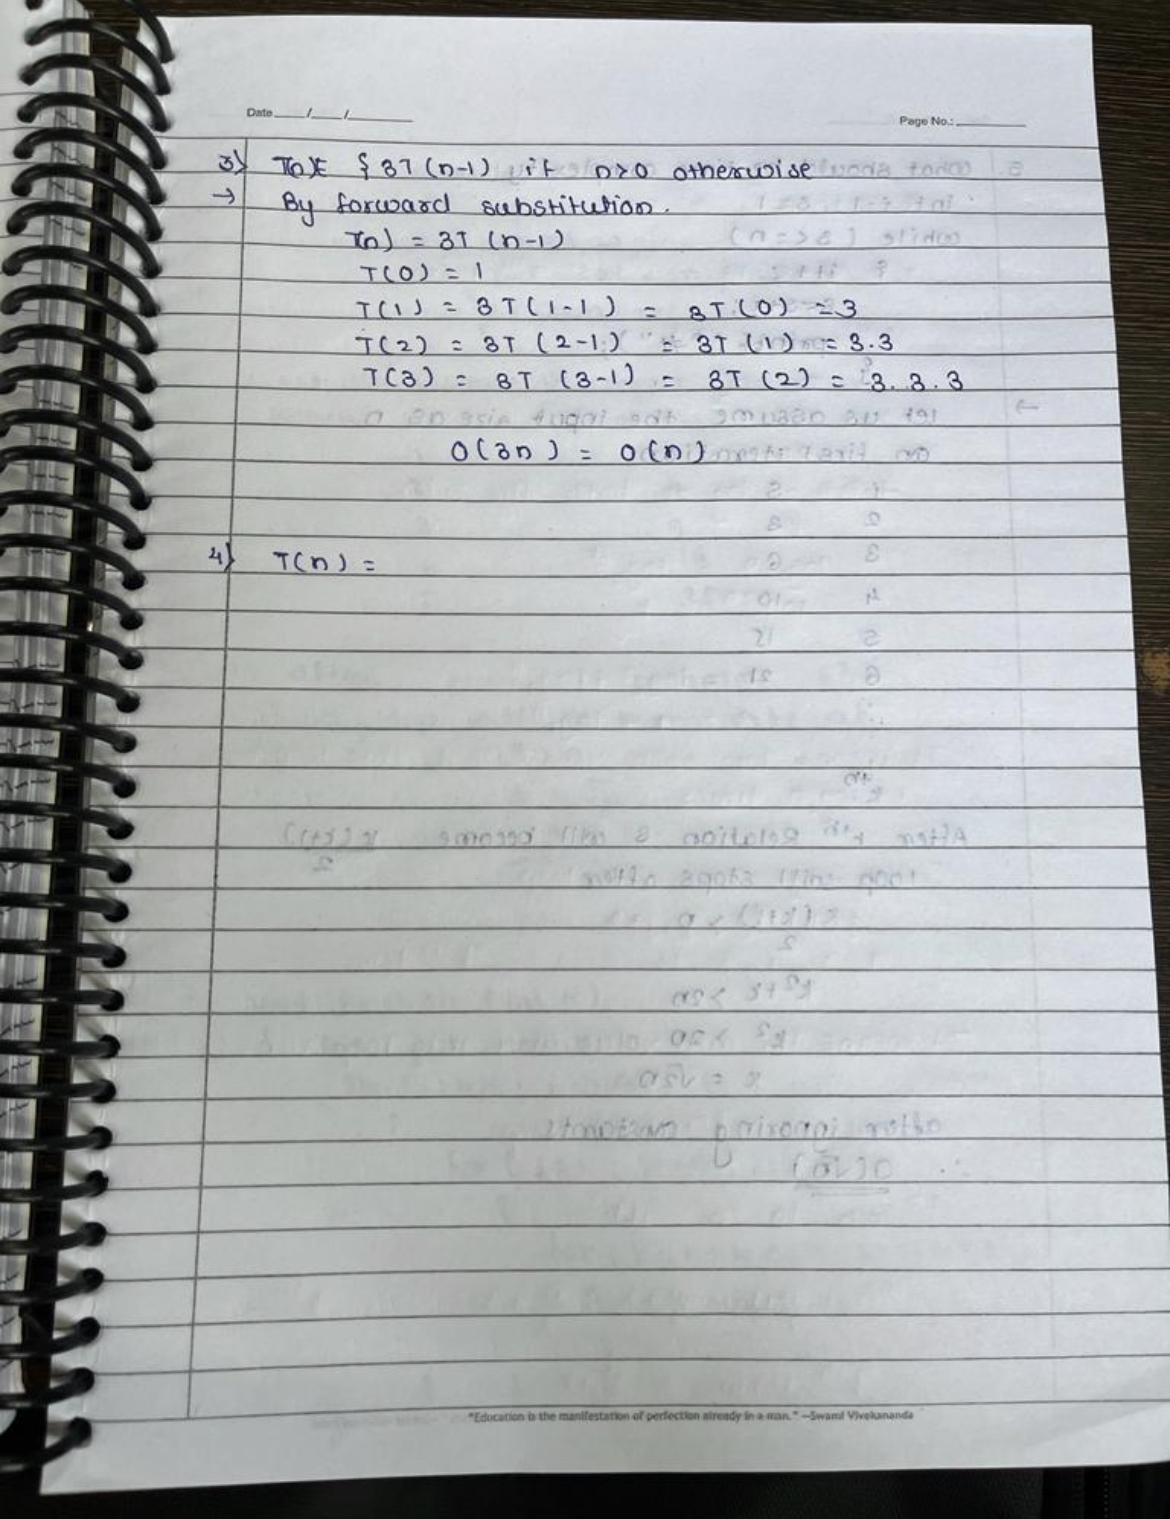 Date ___/___/______
Page No.: ______
3) T(n)= { 3T (n-1) if n>0 otherwise
→ By forward substitution.
T(n) = 3T (n-1)
T(0) = 1
T(1) = 3T(1-1) = 3T(0) = 3
T(2) = 3T (2-1) = 3T (1) = 3.3
T(3) = 3T (3-1) = 3T (2) = 3.3.3
O(3n) = O(n)
4) T(n) =
"Education is the manifestation of perfection already in a man." —Swami Vivekananda